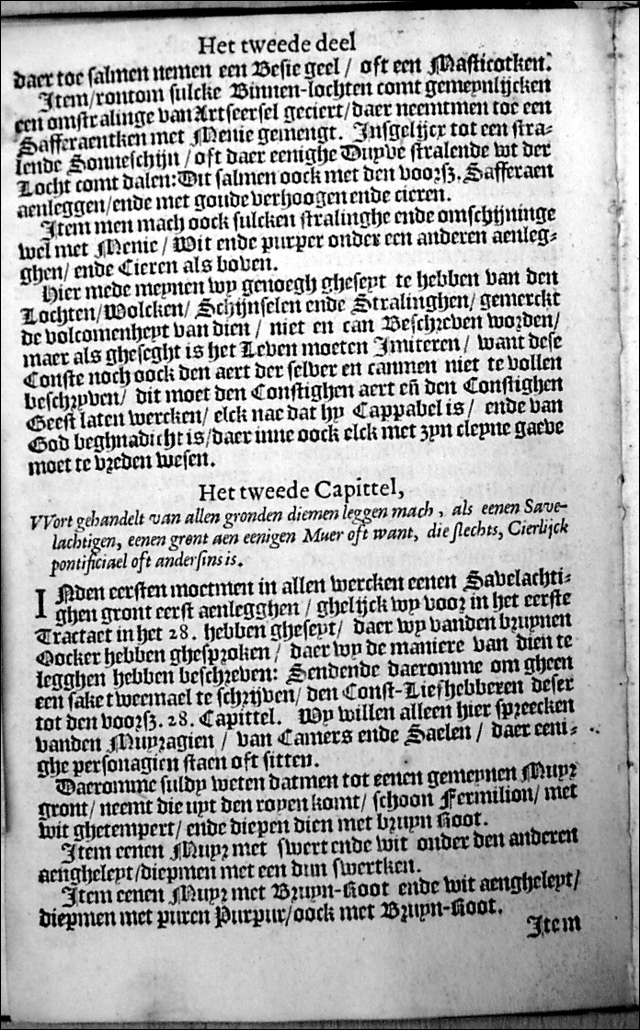 Het tweede deel
daer toe salmen nemen een Besie geel / oft een Masticotken.
Item/rontom sulcke Binnen-lochten comt gemeynlijcken
een omstralinge van Artseersel geciert/daer neemtmen toe een
Safferaentken met Menie gemengt. Insgelijcx tot een stra-
lende Sonneschijn / oft daer eenighe Duyve stralende wt der
Locht comt dalen: Dit salmen oock met den voorsz. Safferaen
aenleggen/ende met goude verhoogen ende cieren.
Item men mach oock sulcken stralinghe ende omschijninge
wel met Menie / Wit ende purper onder een anderen aenleg-
ghen/ ende Cieren als boven.
Hier mede meynen wy genoegh gheseyt te hebben van den
Lochten/ Wolcken/ Schijnselen ende Stralinghen/ gemerckt
de volcomenheyt van dien / niet en can Beschreven worden/
maer als gheseght is het Leven moeten Imiteren / want dese
Conste noch oock den aert der selver en canmen niet te vollen
beschryven/ dit moet den Constighen aert eñ den Constighen
Geest laten wercken/ elck nae dat hy Cappabel is / ende van
God beghnadicht is/daer inne oock elck met zyn cleyne gaeve
moet te vreden wesen.
Het tweede Capittel,
VVort gehandelt van allen gronden diemen leggen mach, als eenen Save-
lachtigen, eenen gront aen eenigen Muer oft want, die slechts, Cierlijck
pontificiael oft andersins is.
INden eersten moetmen in allen wercken eenen Savelachti-
ghen gront eerst aenlegghen / ghelijck wy voor in het eerste
Tractaet in het 28. hebben gheseyt/ daer wy vanden bruynen
Oocker hebben ghesproken / daer wy de maniere van dien te
legghen hebben beschreven: Sendende daeromme om gheen
een sake tweemael te schrijven/ den Const-Liefhebberen deser
tot den voorsz. 28. Capittel. Wy willen alleen hier spreecken
vanden Muyragien / van Camers ende Saelen / daer eeni-
ghe personagien staen oft sitten.
Daeromme suldy weten datmen tot eenen gemeynen Muyr
gront/ neemt die uyt den royen komt/ schoon Fermilion/ met
wit ghetempert/ ende diepen dien met bruyn Root.
Item eenen Muyr met swert ende wit onder den anderen
aengheleyt/diepmen met een dun swertken.
Item eenen Muyr met Bruyn-Root ende wit aengheleyt/
diepmen met puren Purpur/oock met Bruyn-Root.
Item